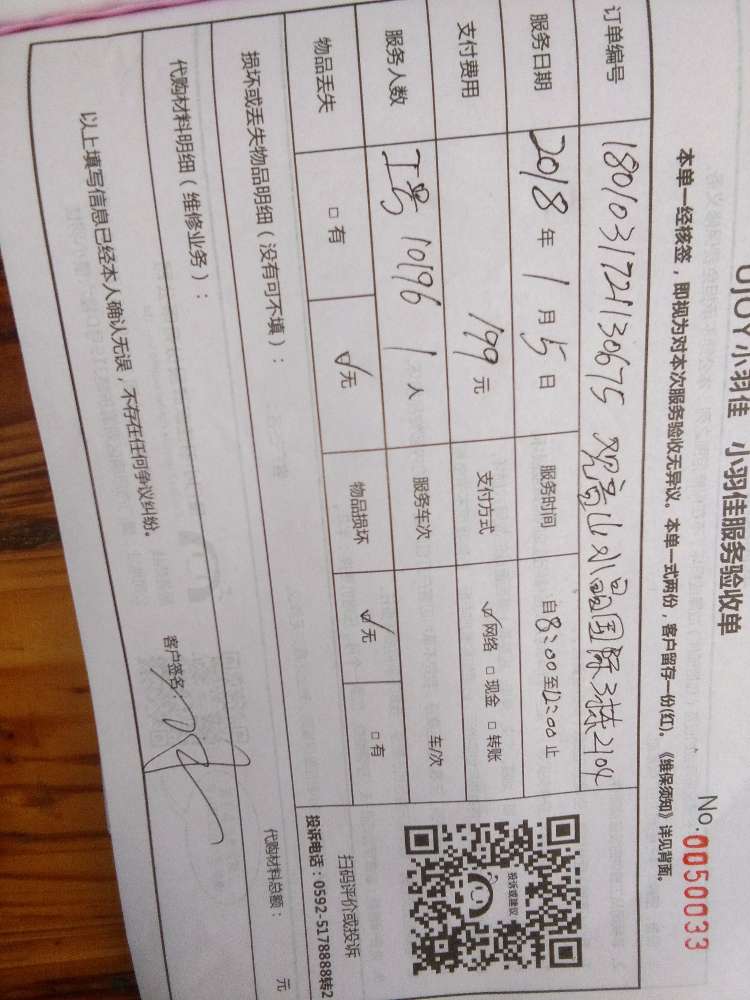 UJOY小羽佳 小羽佳服务验收单
No.0050033
本单一经核签，即视为对本次服务验收无异议。本单一式两份，客户留存一份(红)。《维保须知》详见背面。
订单编号 1801031724130675 观音山水晶国际3栋2104
服务日期 2018年1月5日 服务时间 自8:00至12:00止
支付费用 199元 支付方式 ✓网络 □现金 □转账
服务人数 工号10196 1人 服务车次 车/次
物品丢失 □有 ✓无 物品损坏 ✓无 □有
损坏或丢失物品明细（没有可不填）：
代购材料明细（维修业务）：
代购材料总额： 元
以上填写信息已经本人确认无误，不存在任何争议纠纷。
客户签名：
投诉或建议
扫码评价或投诉
投诉电话：0592-5178888转2